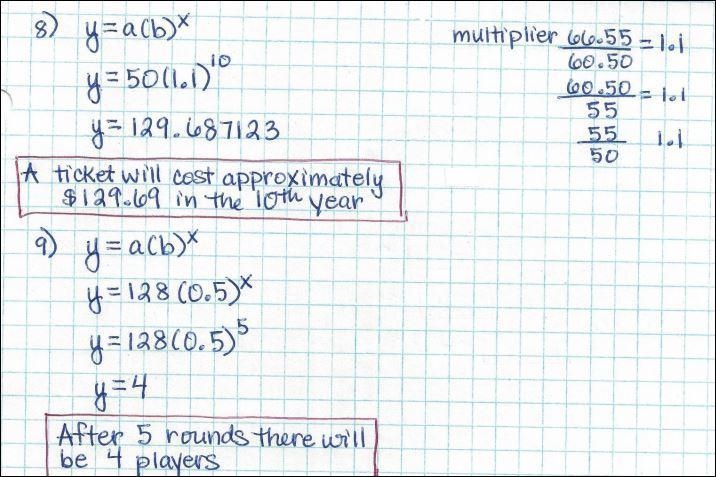 8) y = a(b)^x
y = 50(1.1)^10
y = 129.687123
A ticket will cost approximately
$129.69 in the 10th year
multiplier 66.55/60.50 = 1.1
60.50/55 = 1.1
55/50 1.1
9) y = a(b)^x
y = 128 (0.5)^x
y = 128(0.5)^5
y = 4
After 5 rounds there will
be 4 players